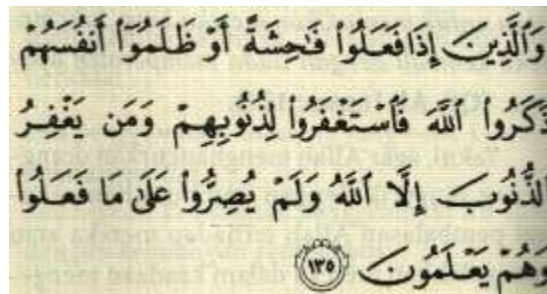 وَٱلَّذِينَ إِذَا فَعَلُوا۟ فَٰحِشَةً أَوْ ظَلَمُوٓا۟ أَنفُسَهُمْ
ذَكَرُوا۟ ٱللَّهَ فَٱسْتَغْفَرُوا۟ لِذُنُوبِهِمْ وَمَن يَغْفِرُ
ٱلذُّنُوبَ إِلَّا ٱللَّهُ وَلَمْ يُصِرُّوا۟ عَلَىٰ مَا فَعَلُوا۟
وَهُمْ يَعْلَمُونَ ١٣٥